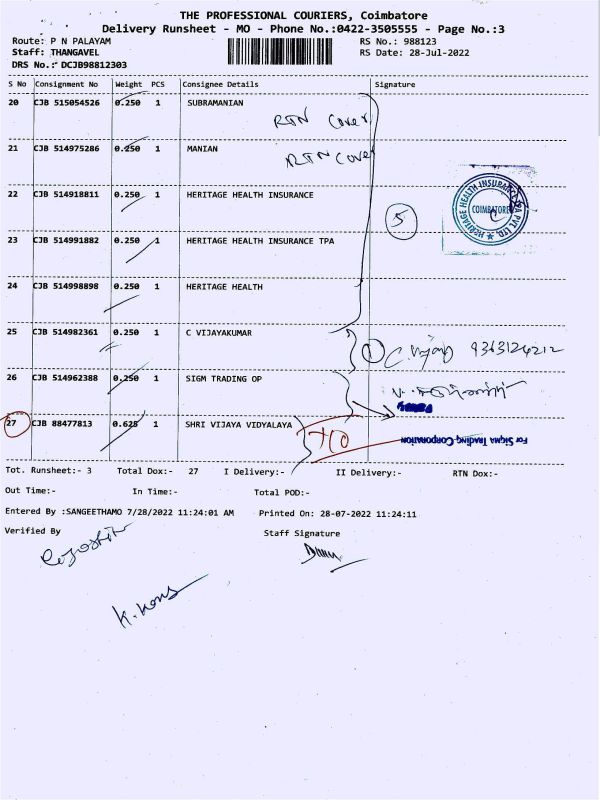 THE PROFESSIONAL COURIERS, Coimbatore
Delivery Runsheet - MO - Phone No.:0422-3505555 - Page No.:3
Route: P N PALAYAM RS No.: 988123
Staff: THANGAVEL RS Date: 28-Jul-2022
DRS No.: DCJB98812303
S No Consignment No Weight PCS Consignee Details Signature
20 CJB 515054526 0.250 1 SUBRAMANIAN
RTN Cover
21 CJB 514975286 0.250 1 MANIAN
RTN Cover
22 CJB 514918811 0.250 1 HERITAGE HEALTH INSURANCE
5
HERITAGE HEALTH INSURANCE TPA PVT. LTD.
COIMBATORE
23 CJB 514991882 0.250 1 HERITAGE HEALTH INSURANCE TPA
24 CJB 514998898 0.250 1 HERITAGE HEALTH
25 CJB 514982361 0.250 1 C VIJAYAKUMAR
1 C. Vijay 9363124212
26 CJB 514962388 0.250 1 SIGM TRADING OP
27 CJB 88477813 0.625 1 SHRI VIJAYA VIDYALAYA
For Sigma Trading Corporation
Tot. Runsheet:- 3 Total Dox:- 27 I Delivery:- II Delivery:- RTN Dox:-
Out Time:- In Time:- Total POD:-
Entered By :SANGEETHAMO 7/28/2022 11:24:01 AM Printed On: 28-07-2022 11:24:11
Verified By Staff Signature